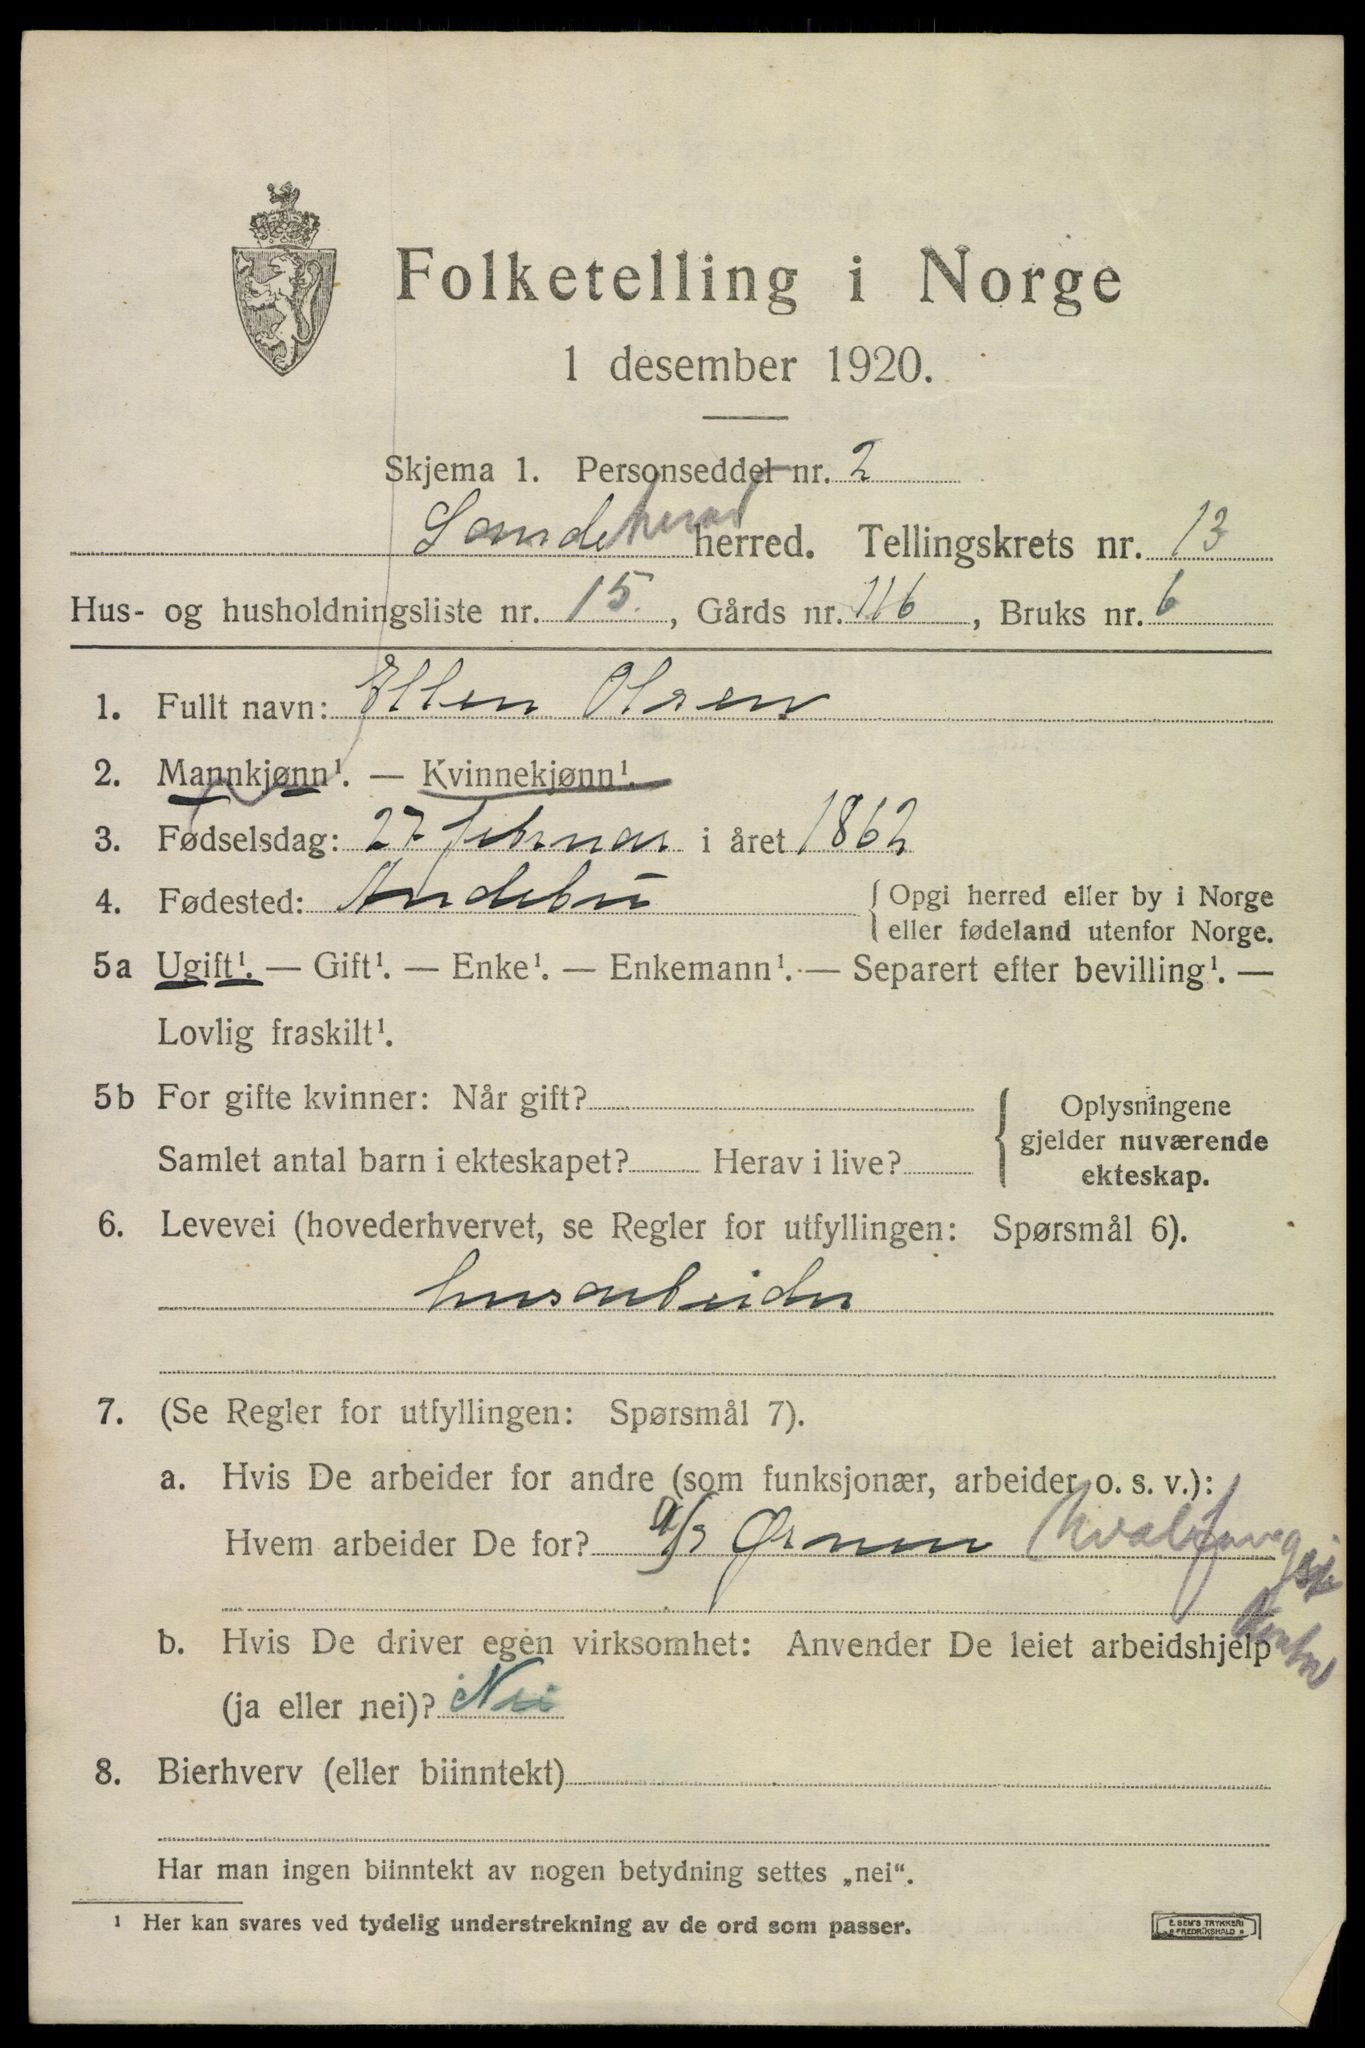 Folketelling i Norge
1 desember 1920.
Skjema 1. Personseddel nr. 2
Sandeherad herred. Tellingskrets nr. 13
Hus- og husholdningsliste nr. 15., Gårds nr. 116, Bruks nr. 6
1. Fullt navn: Ellen Olsen
2. Mannkjønn¹. — Kvinnekjønn¹.
3. Fødselsdag: 27 februar i året 1862
4. Fødested: Andebu { Opgi herred eller by i Norge
eller fødeland utenfor Norge.
5a Ugift¹. — Gift¹. — Enke¹. — Enkemann¹. — Separert efter bevilling¹. —
Lovlig fraskilt¹.
5b For gifte kvinner: Når gift?
Samlet antal barn i ekteskapet? Herav i live?
{ Oplysningene
gjelder nuværende
ekteskap.
6. Levevei (hovederhvervet, se Regler for utfyllingen: Spørsmål 6).
husarbeider
7. (Se Regler for utfyllingen: Spørsmål 7).
a. Hvis De arbeider for andre (som funksjonær, arbeider o. s. v.):
Hvem arbeider De for? A/S Ørnen Hvalfangst
b. Hvis De driver egen virksomhet: Anvender De leiet arbeidshjelp
(ja eller nei)? Nei
8. Bierhverv (eller biinntekt)
Har man ingen biinntekt av nogen betydning settes „nei“.
¹ Her kan svares ved tydelig understrekning av de ord som passer.
E. SEM'S TRYKKERI
FREDRIKSHALD